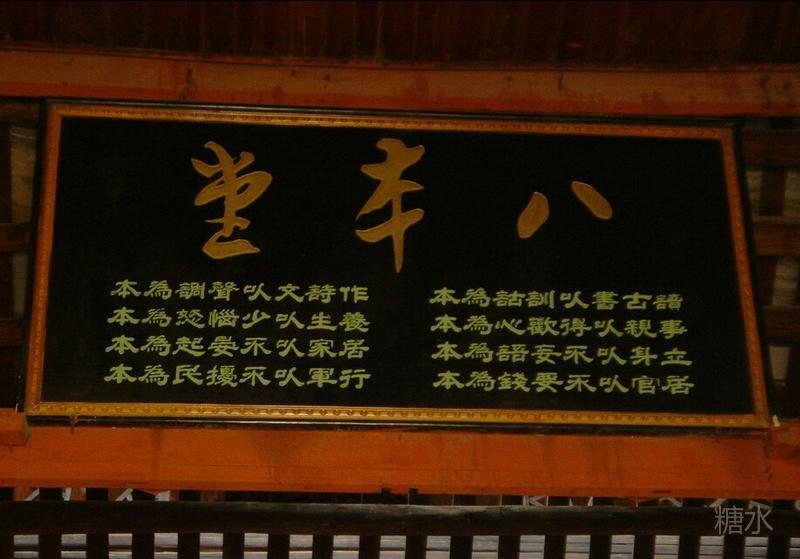 八本堂
讀古書以訓詁為本
作詩文以聲調為本
事親以得歡心為本
養生以少惱怒為本
立身以不妄語為本
居家以不晏起為本
居官以不要錢為本
行軍以不擾民為本
糖水